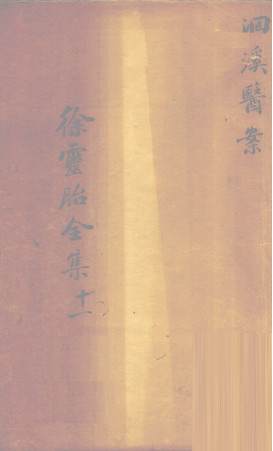 洄溪醫案
徐靈胎全集十一